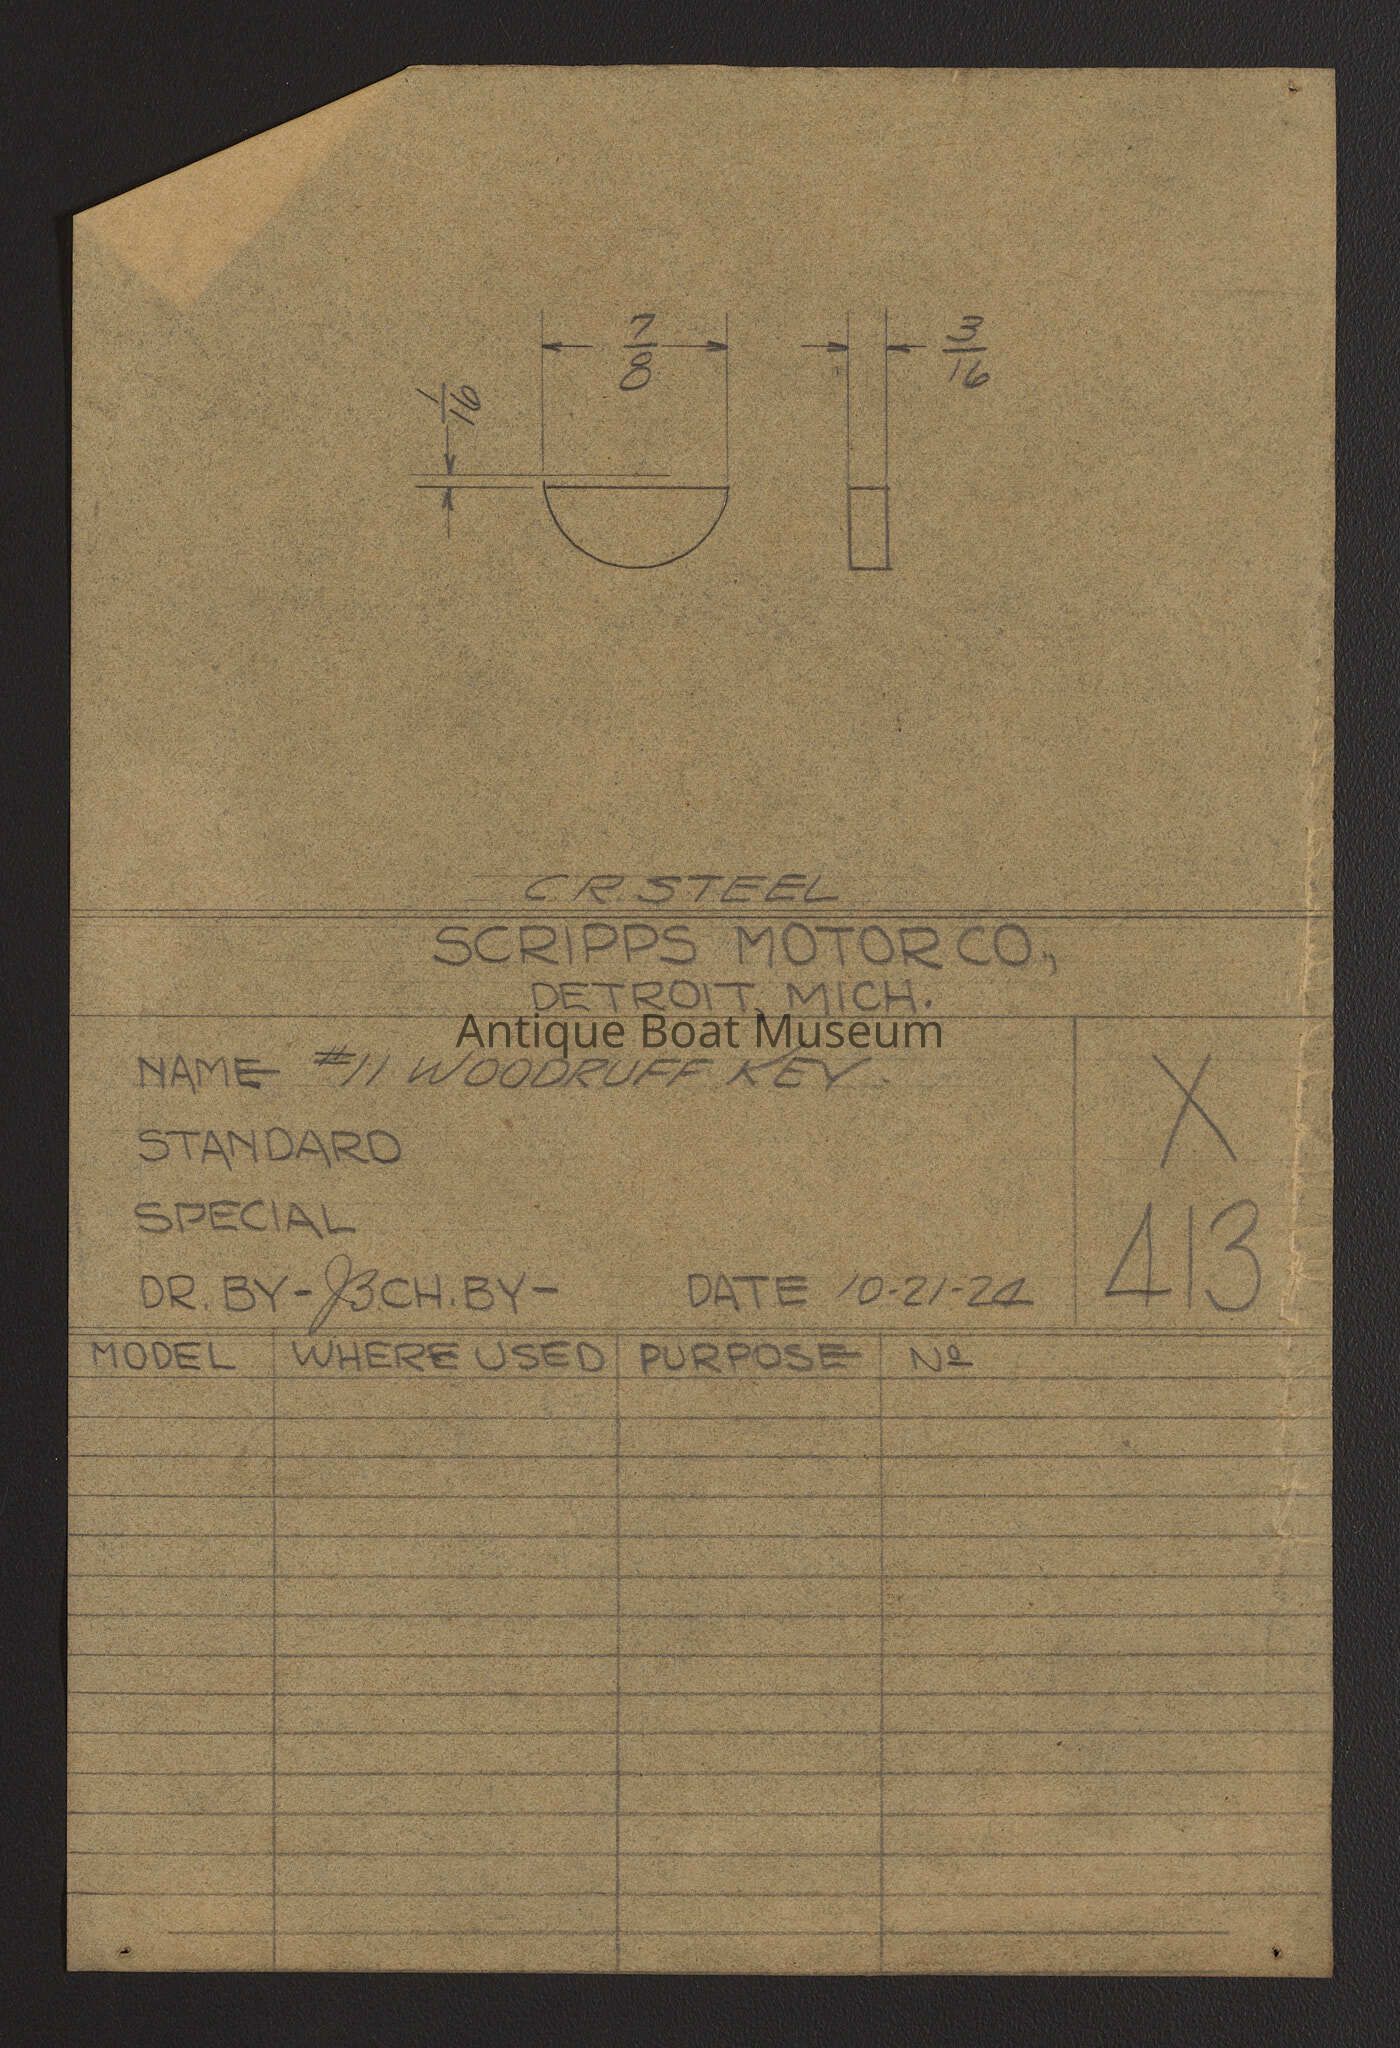 7/8
3/16
1/16
C.R. STEEL
SCRIPPS MOTOR CO.,
DETROIT, MICH.
Antique Boat Museum
NAME #11 WOODRUFF KEY
X
STANDARD
SPECIAL
413
DR. BY- JB. CH. BY- DATE 10-21-24
MODEL WHERE USED PURPOSE No